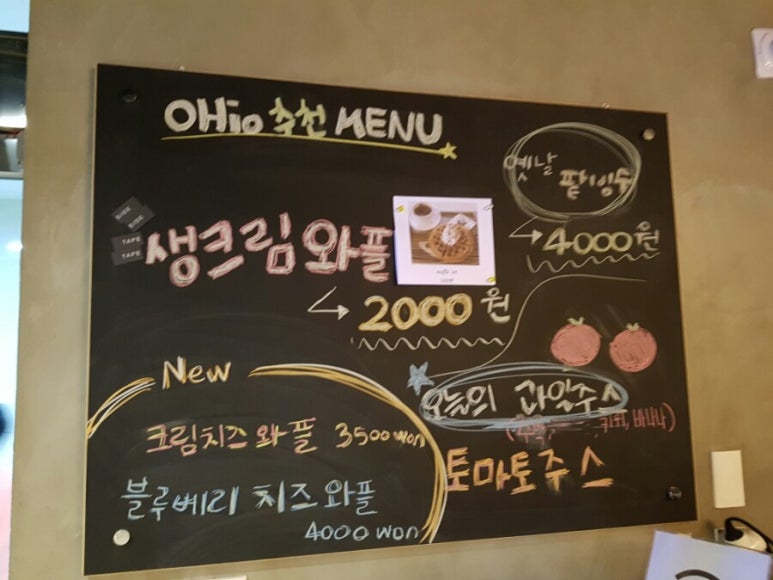 OHio 추천 MENU
옛날
팥빙수
4000원
SIDE
SIDE
TAPE
TAPE
생크림 와플
2000원
New
크림치즈 와플 3500won
블루베리 치즈와플
4000 won
오늘의 과일주스
토마토주스